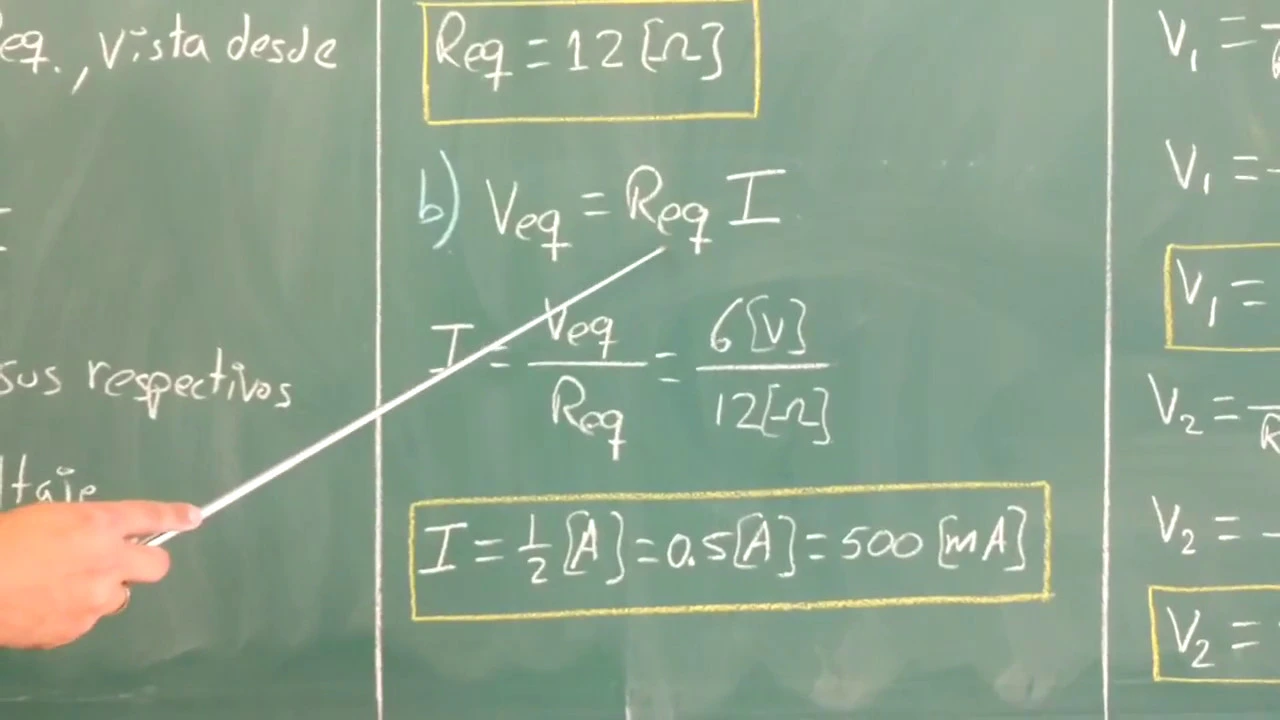 eq., vista desde
sus respectivos
ltaje
Req = 12 [Ω]
b) Veq = Req I
I = Veq / Req = 6[V] / 12[Ω]
I = 1/2 [A] = 0.5 [A] = 500 [mA]
V₁ =
V₁ =
V₁ =
V₂ =
V₂ =
V₂ =